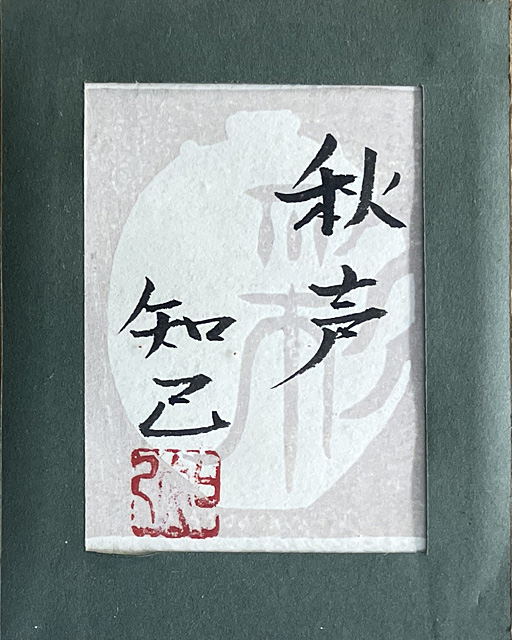 秋声
知己